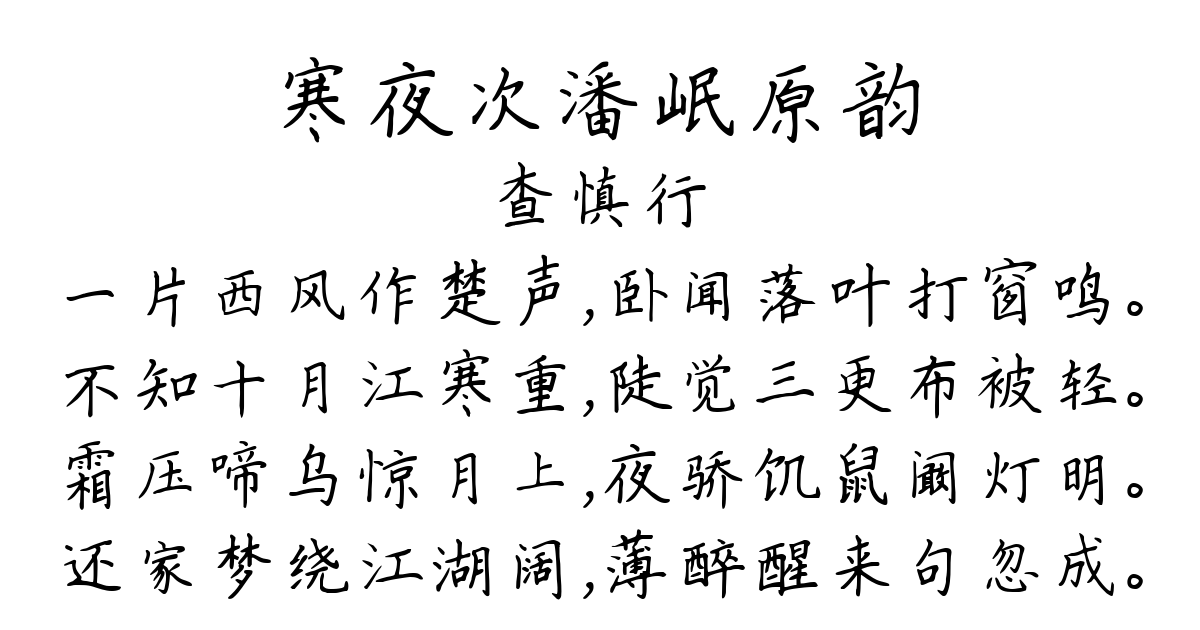 寒夜次潘岷原韵
查慎行
一片西风作楚声,卧闻落叶打窗鸣。
不知十月江寒重,陡觉三更布被轻。
霜压啼乌惊月上,夜骄饥鼠阚灯明。
还家梦绕江湖阔,薄醉醒来句忽成。